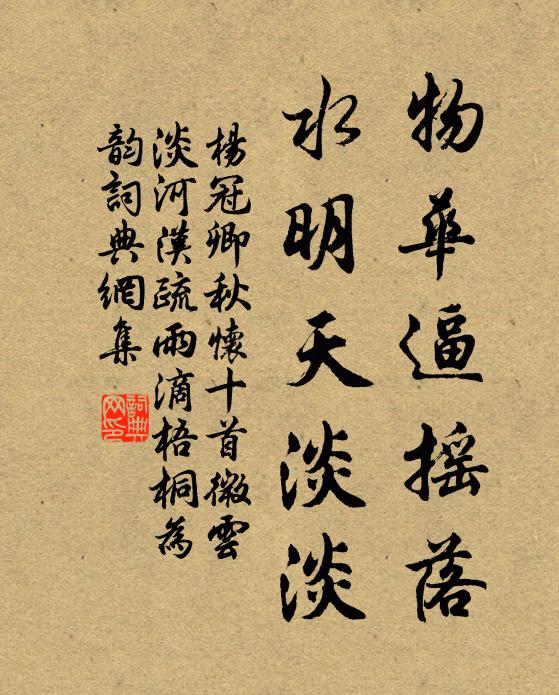 物華逼摇落
水明天淡淡
楊冠卿秋懷十首微雲
淡河漢疏雨滴梧桐為
韵詞典網集
詞典
网印